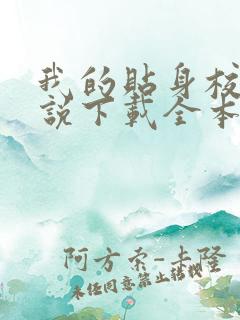 我的貼身校
說下載全本
阿方索-卡隆
未任同意禁止搭載